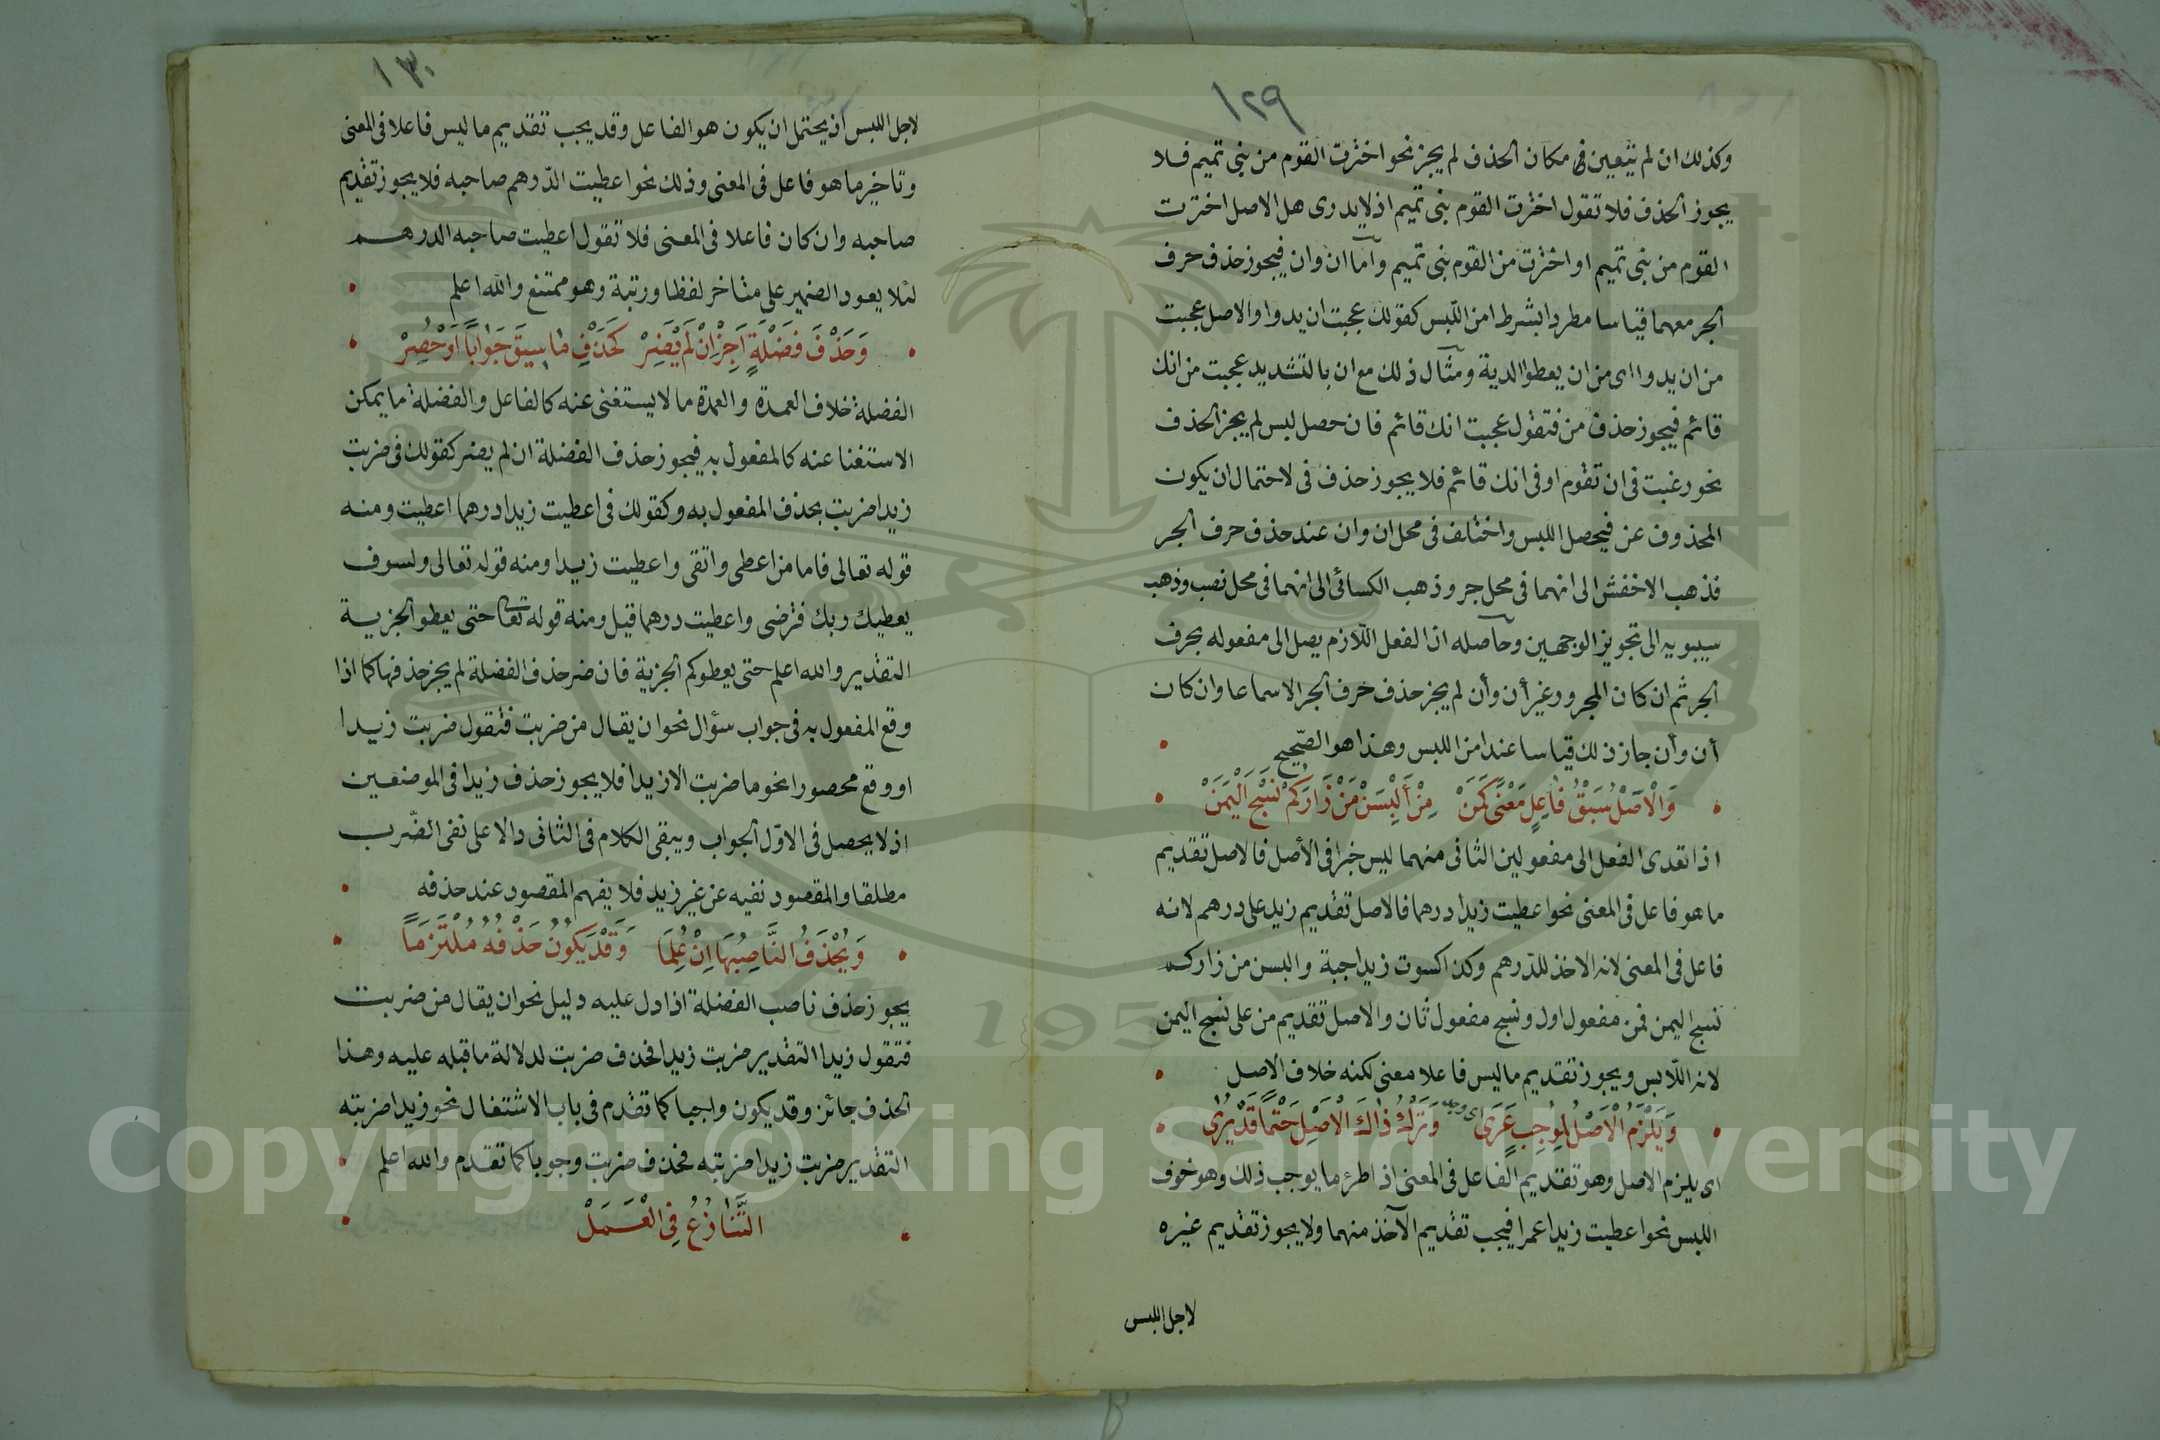 ١٢٩
وكذلك ان لم يتعين فى مكان الحذف لم يجز نحو اخترت القوم من بنى تميم فلا
يجوز الحذف فلا تقول اخترت القوم بنى تميم اذ لا يدرى هل الاصل اخترت
القوم من بنى تميم او اخترت من القوم بنى تميم واما ان وان فيجوز حذف حرف
الجر معهما قياسا مطردا بشرط امن اللبس كقولك عجبت ان يدوا والاصل عجبت
من ان يدوا اى من ان يعطوا الدية ومثال ذلك مع ان بالتشديد عجبت من انك
قائم فيجوز حذف من فتقول عجبت انك قائم فان حصل لبس لم يجز الحذف
نحو رغبت فى ان تقوم او فى انك قائم فلا يجوز حذف فى لاحتمال ان يكون
المحذوف عن فيحصل اللبس واختلف فى محل ان وان عند حذف حرف الجر
فذهب الاخفش الى انهما فى محل جر وذهب الكسائى الى انهما فى محل نصب وذهب
سيبويه الى تجويز الوجهين وحاصله ان الفعل اللازم يصل الى مفعوله بحرف
الجر ثم ان كان المجرور غير أن وأن لم يجز حذف حرف الجر الا سماعا وان كان
أن وأن جاز ذلك قياسا عند امن اللبس وهذا هو الصحيح
وَالْاَصْلُ سَبْقُ فَاعِلٍ مَعْنًى كَمَنْ مِنْ أَلْبِسَنْ مَنْ زَارَكُمْ نَسْجَ الْيَمَنْ
اذا تعدى الفعل الى مفعولين الثانى منهما ليس خبرا فى الأصل فالاصل تقديم
ما هو فاعل فى المعنى نحو اعطيت زيدا درهما فالاصل تقديم زيد على درهم لانه
فاعل فى المعنى لانه الاخذ للدرهم وكذا كسوت زيدا جبة والبسن من زاركم
نسج اليمن فمن مفعول اول ونسج مفعول ثان والاصل تقديم من على نسج اليمن
لانه اللابس ويجوز تقديم ما ليس فاعلا معنى لكنه خلاف الاصل
وَيَلْزَمُ الْاَصْلُ لِمُوجِبٍ عَرَى وَتَرْكُ ذَاكَ الْاَصْلِ حَتْمًا قَدْ يُرٰى
اى يلزم الاصل وهو تقديم الفاعل فى المعنى اذا طرئ ما يوجب ذلك وهو خوف
اللبس نحو اعطيت زيدا عمرا فيجب تقديم الآخذ منهما ولا يجوز تقديم غيره
لاجل اللبس
١٣٠
لاجل اللبس اذ يحتمل ان يكون هو الفاعل وقد يجب تقديم ما ليس فاعلا فى المعنى
وتاخير ما هو فاعل فى المعنى وذلك نحو اعطيت الدرهم صاحبه فلا يجوز تقديم
صاحبه وان كان فاعلا فى المعنى فلا تقول اعطيت صاحبه الدرهم
لئلا يعود الضمير على متاخر لفظا ورتبة وهو ممتنع والله اعلم
وَحَذْفَ فَضْلَةٍ اَجِزْ اِنْ لَمْ يَضِرْ كَحَذْفِ مَا سِيقَ جَوَاباً اَوْ حُصِرْ
الفضلة خلاف العمدة والعمدة ما لا يستغنى عنه كالفاعل والفضلة ما يمكن
الاستغنا عنه كالمفعول به فيجوز حذف الفضلة ان لم يضر كقولك فى ضربت
زيدا ضربت بحذف المفعول به وكقولك فى اعطيت زيدا درهما اعطيت ومنه
قوله تعالى فاما من اعطى واتقى واعطيت زيدا ومنه قوله تعالى ولسوف
يعطيك ربك فترضى واعطيت درهما قيل ومنه قوله تعا حتى يعطوا الجزية
التقدير والله اعلم حتى يعطوكم الجزية فان ضر حذف الفضلة لم يجز حذفها كما اذا
وقع المفعول به فى جواب سؤال نحو ان يقال من ضربت فتقول ضربت زيدا
او وقع محصورا نحو ما ضربت الا زيدا فلا يجوز حذف زيدا فى الموضعين
اذ لا يحصل فى الاول الجواب ويبقى الكلام فى الثانى دالا على نفى الضرب
مطلقا والمقصود نفيه عن غير زيد فلا يفهم المقصود عند حذفه
وَيُحْذَفُ النَّاصِبُهَا اِنْ عُلِمَا وَقَدْ يَكُونُ حَذْفُهُ مُلْتَزَمَاً
يجوز حذف ناصب الفضلة اذا دل عليه دليل نحو ان يقال من ضربت
فتقول زيدا التقدير ضربت زيدا فحذف ضربت لدلالة ما قبله عليه وهذا
الحذف جائز وقد يكون واجبا كما تقدم فى باب الاشتغال نحو زيدا ضربته
التقدير ضربت زيدا ضربته فحذف ضربت وجوبا كما تقدم والله اعلم
التَّنَازُعُ فِى الْعَمَلْ
Copyright © King Saud University
195